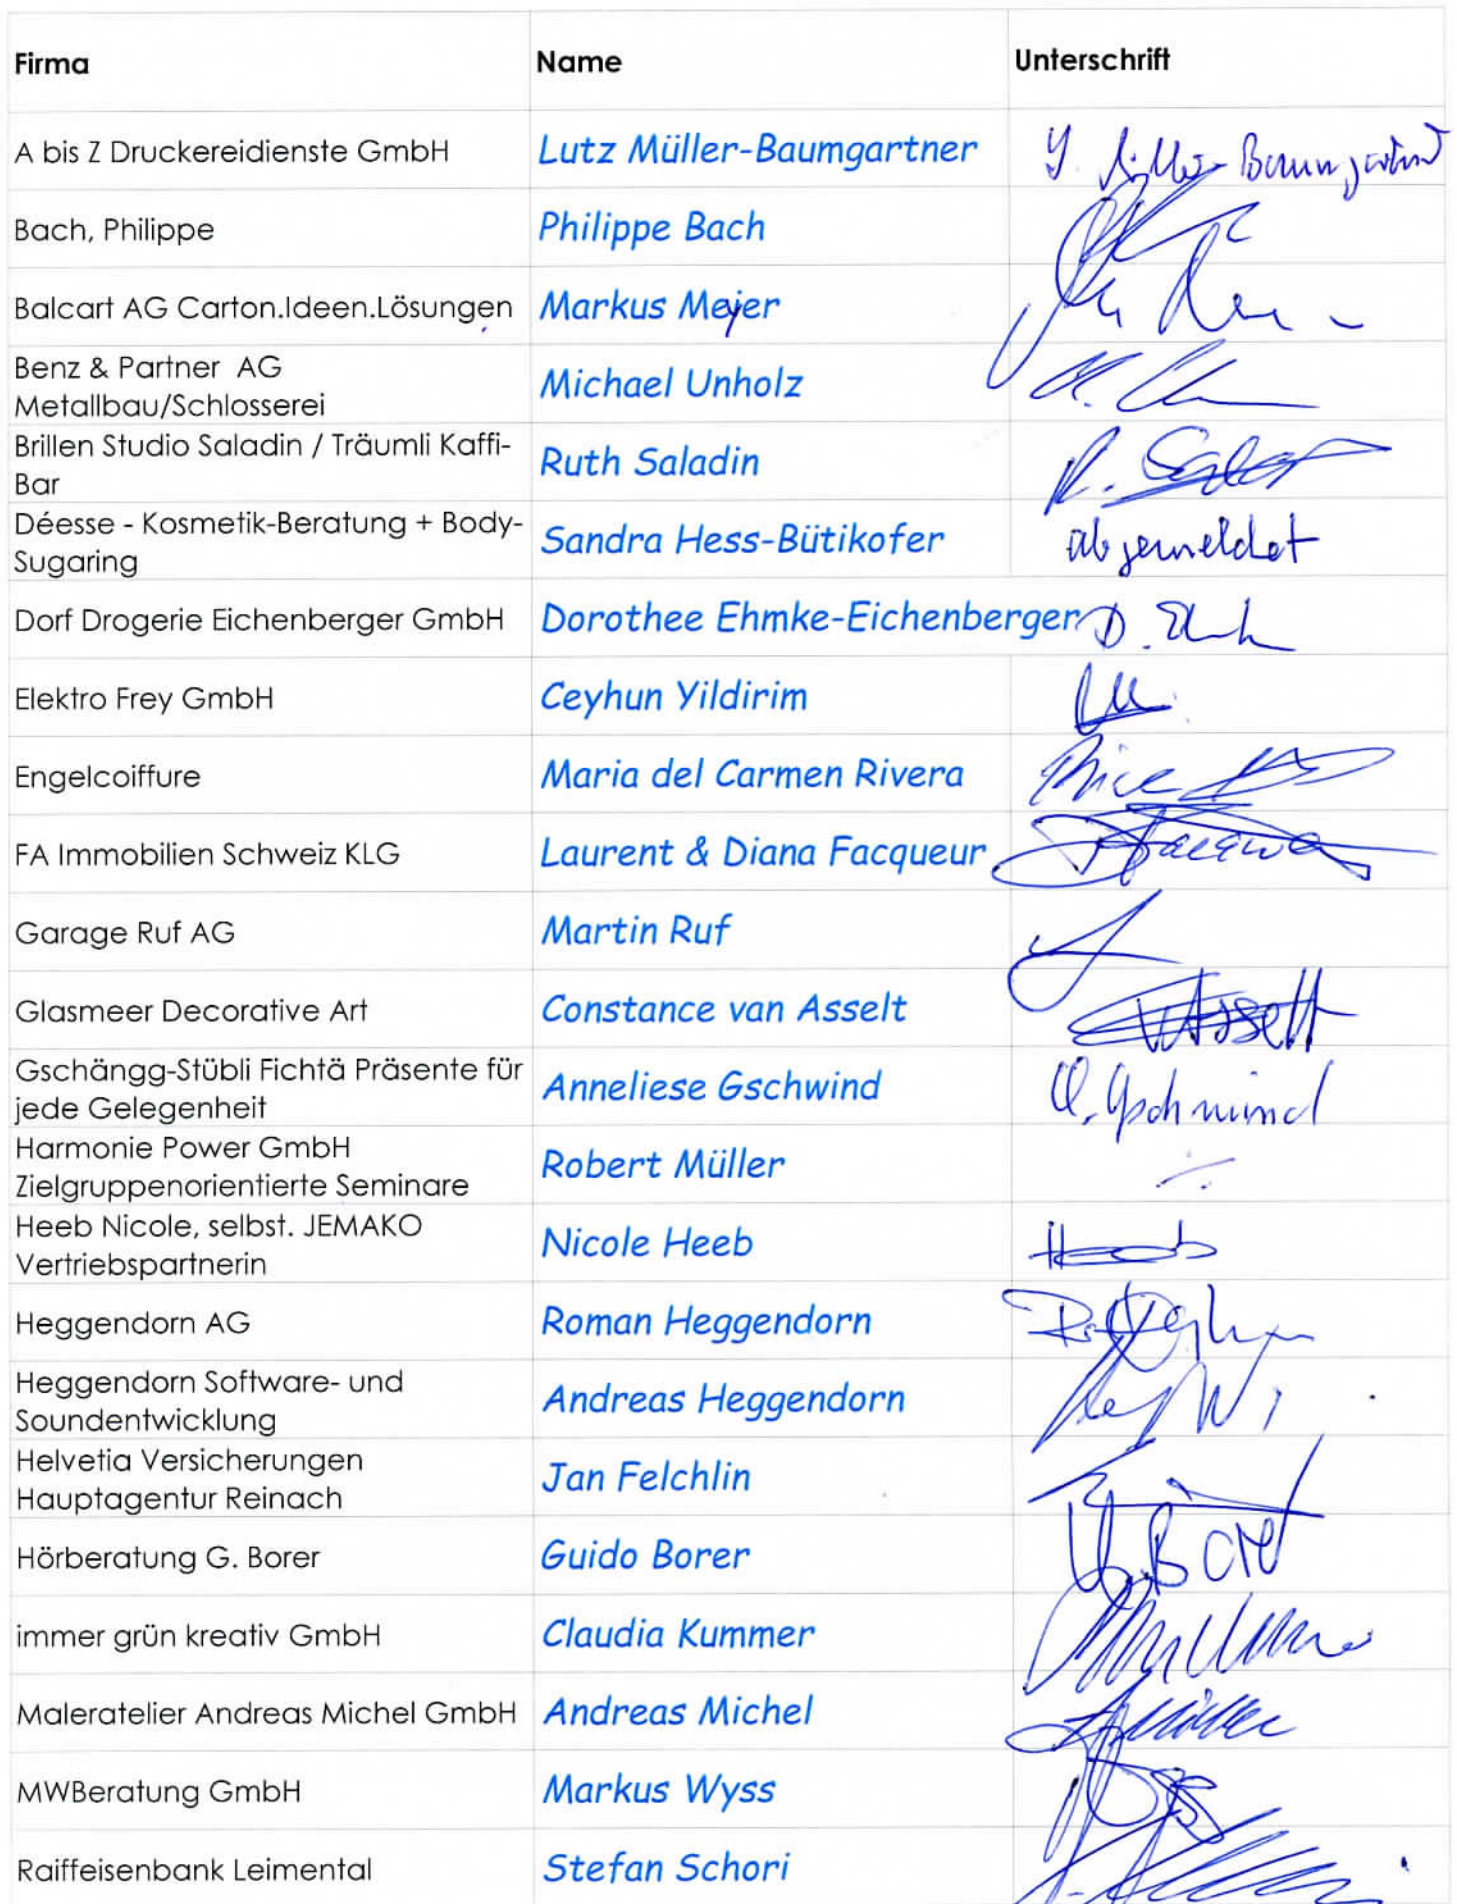 Firma Name Unterschrift
A bis Z Druckereidienste GmbH Lutz Müller-Baumgartner
Bach, Philippe Philippe Bach
Balcart AG Carton.Ideen.Lösungen Markus Meyer
Benz & Partner AG
Metallbau/Schlosserei Michael Unholz
Brillen Studio Saladin / Träumli Kaffi-
Bar Ruth Saladin
Déesse - Kosmetik-Beratung + Body-
Sugaring Sandra Hess-Bütikofer abgemeldet
Dorf Drogerie Eichenberger GmbH Dorothee Ehmke-Eichenberger
Elektro Frey GmbH Ceyhun Yildirim
Engelcoiffure Maria del Carmen Rivera
FA Immobilien Schweiz KLG Laurent & Diana Facqueur
Garage Ruf AG Martin Ruf
Glasmeer Decorative Art Constance van Asselt
Gschängg-Stübli Fichtä Präsente für
jede Gelegenheit Anneliese Gschwind A. Gschwind
Harmonie Power GmbH
Zielgruppenorientierte Seminare Robert Müller
Heeb Nicole, selbst. JEMAKO
Vertriebspartnerin Nicole Heeb Heeb
Heggendorn AG Roman Heggendorn
Heggendorn Software- und
Soundentwicklung Andreas Heggendorn
Helvetia Versicherungen
Hauptagentur Reinach Jan Felchlin
Hörberatung G. Borer Guido Borer G. Borer
immer grün kreativ GmbH Claudia Kummer
Maleratelier Andreas Michel GmbH Andreas Michel
MWBeratung GmbH Markus Wyss
Raiffeisenbank Leimental Stefan Schori